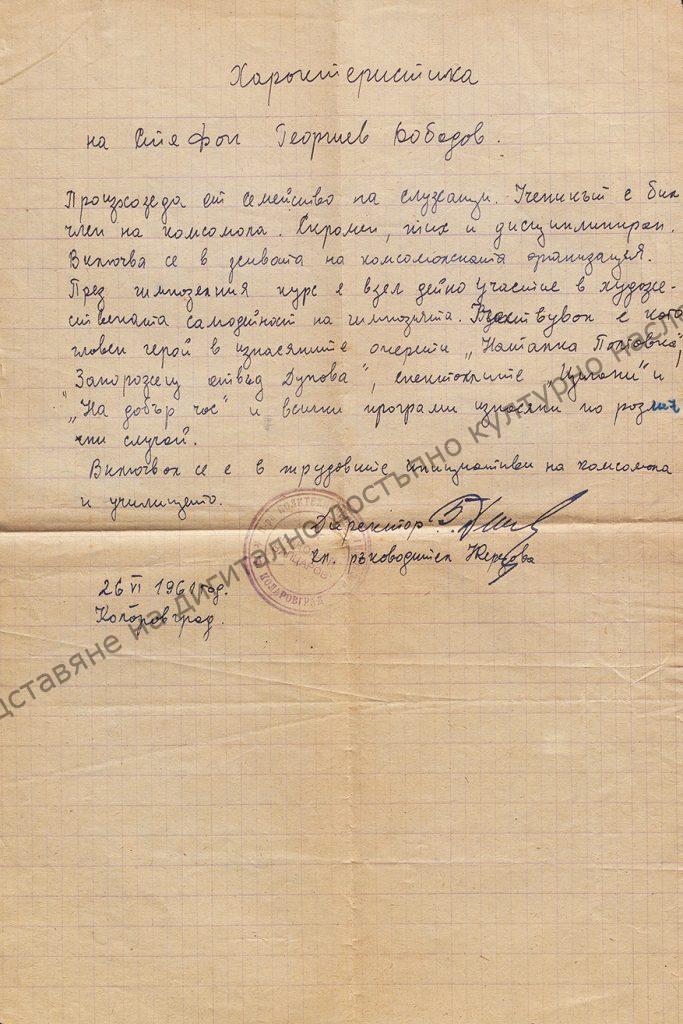 Характеристика
на Стефан Георгиев Кабадов.
Произхожда от семейство на служащи. Ученикът е бил
член на комсомола. Скромен, тих и дисциплиниран.
Включва се в живота на комсомолската организация.
През гимназения курс е взел дейно участие в художе-
ствената самодейност на гимназията. Участвувал е като
главен герой в изнасяните оперети „Наталка Полтавка",
"Запорожец отвъд Дунава", спектаклите „Цигани" и
„На добър час" и всички програми изнасяни по различ
ни случай.
Включвал се е в трудовите инициативи на комсомола
и училището.
Директор
кл. ръководител
26 VI 1961 год.
Коларовград.
КОЛАРОВГРАД
дставяне на дигитално достъпно културно насле